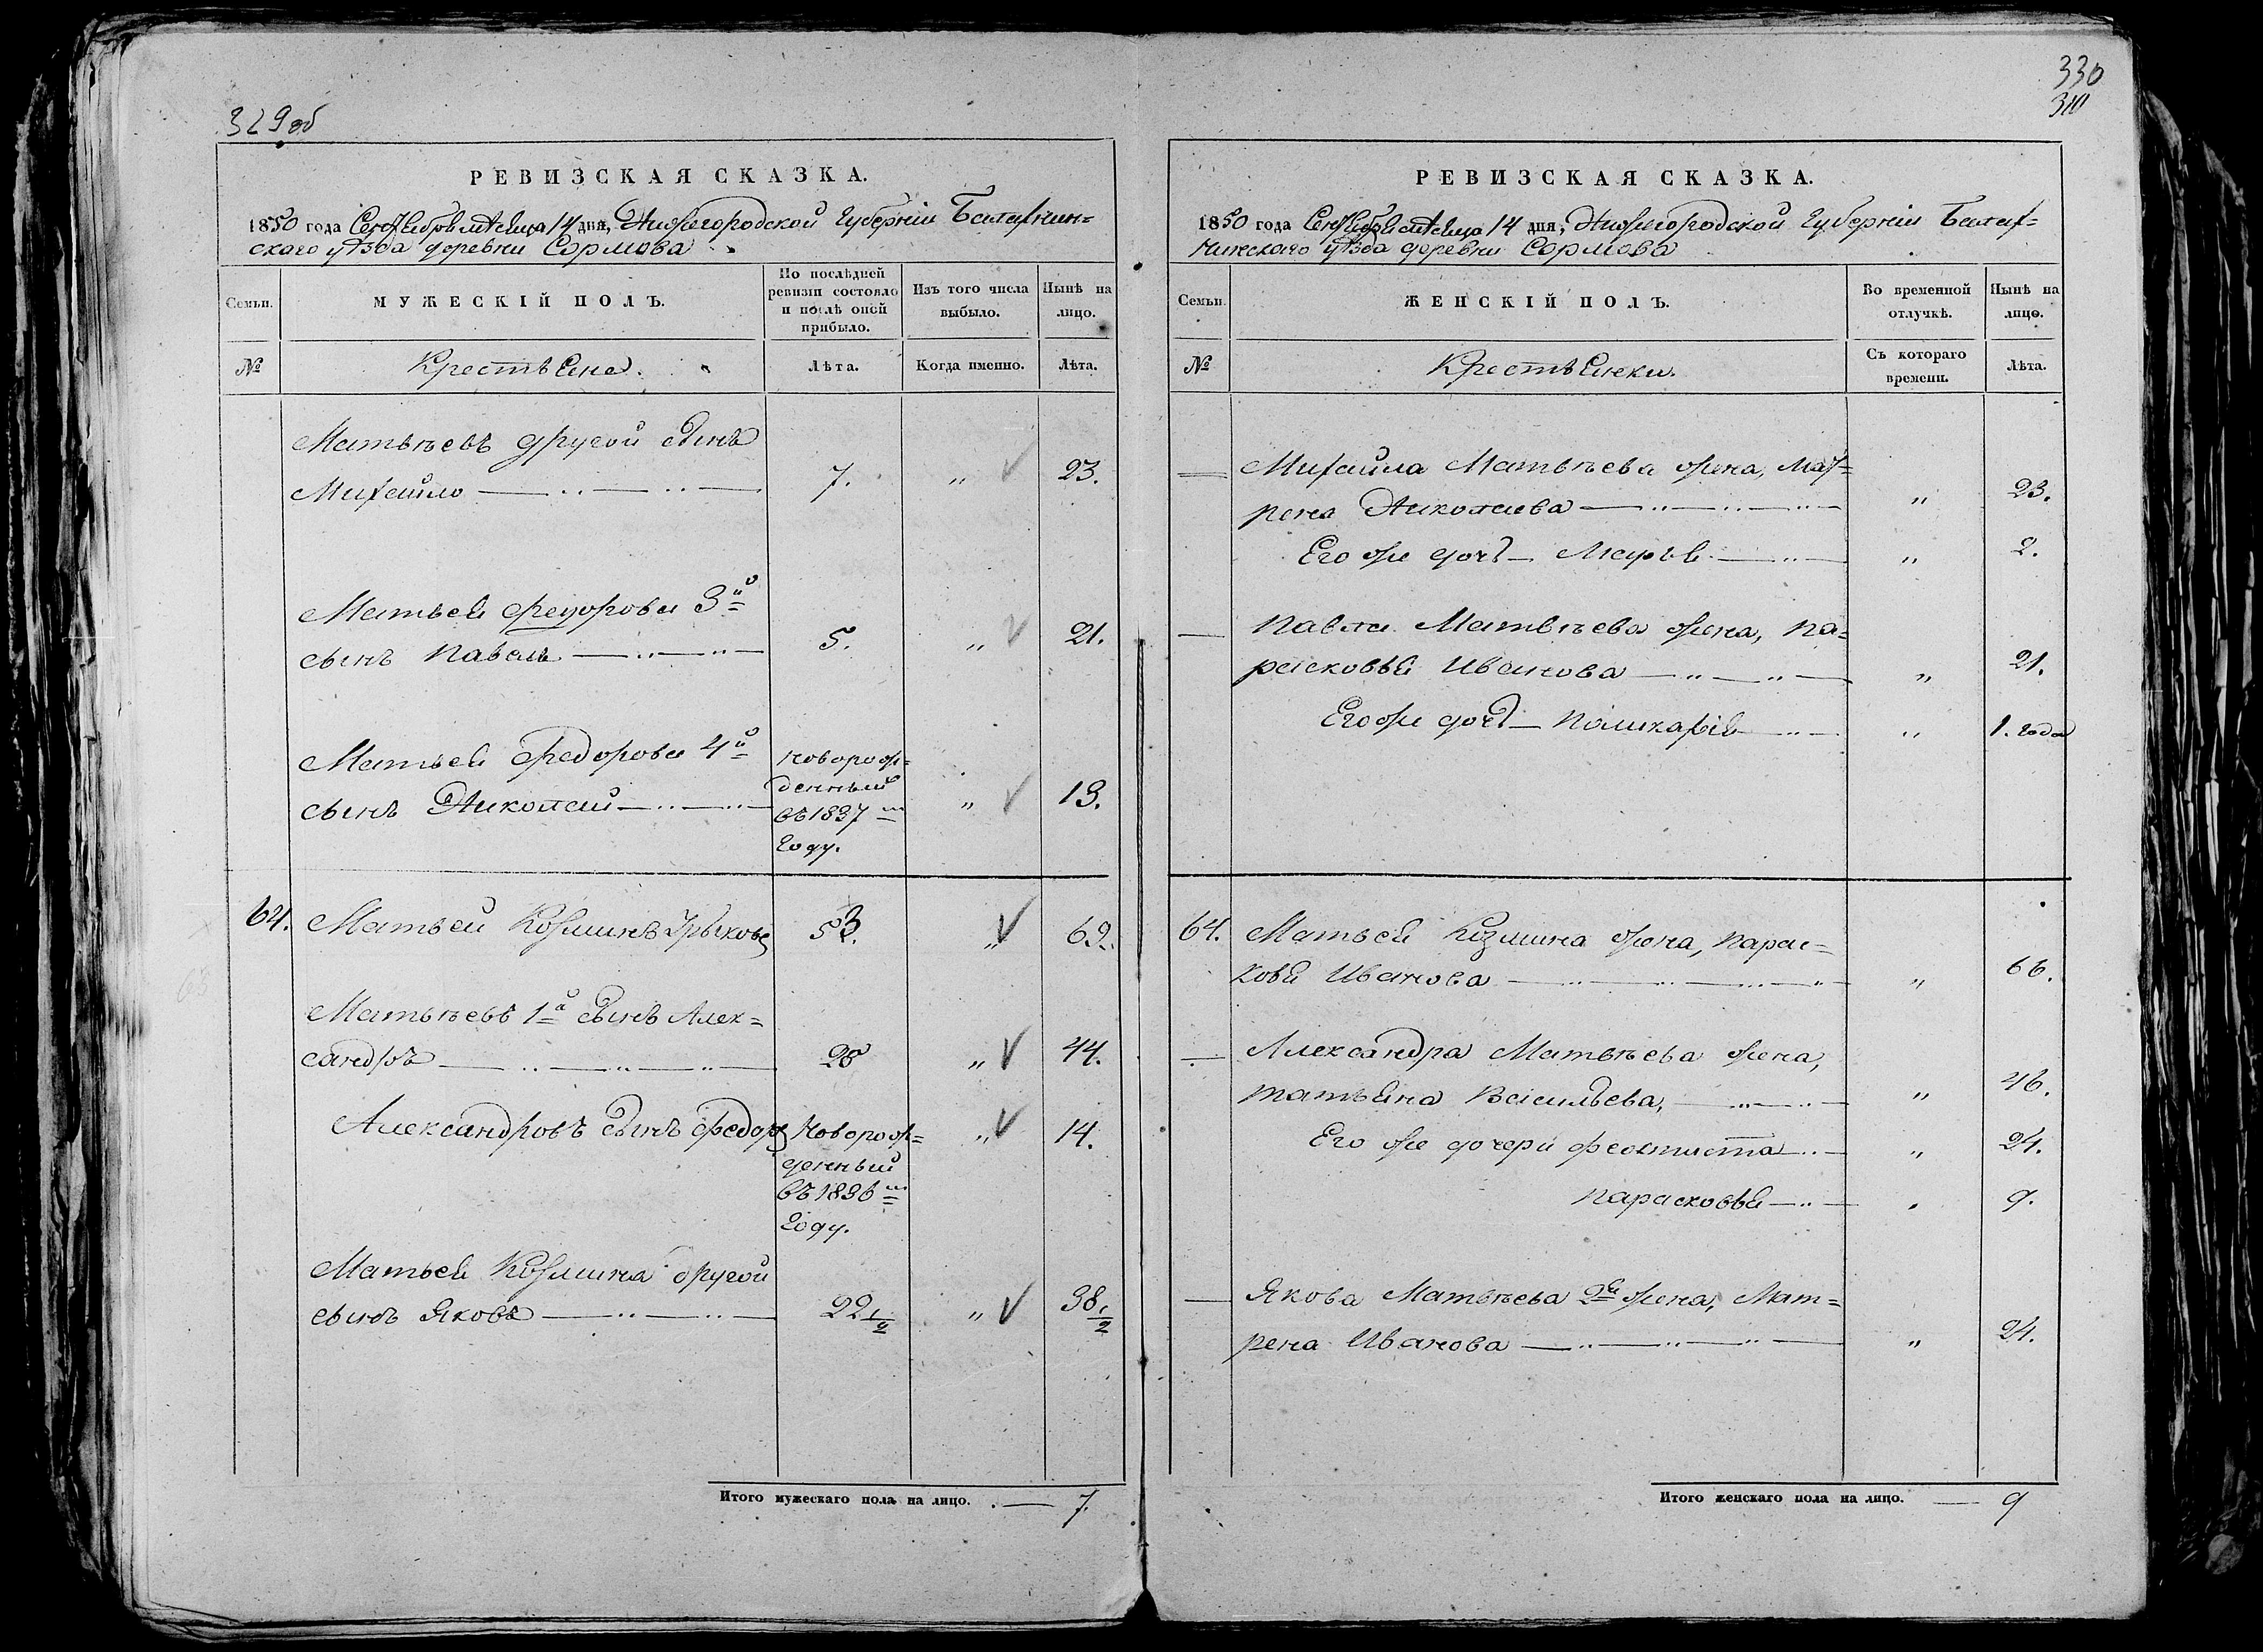 329 об
РЕВИЗСКАЯ СКАЗКА.
1850 года Сентября месяца 14 дня, Нижегородской Губернии Балахнин=
скаго уѣзда деревни Сормова
Семьи.
МУЖЕСКІЙ ПОЛЪ.
По послѣдней
ревизіи состояло
и послѣ оной
прибыло.
Изъ того числа
выбыло.
Нынѣ на
лицо.
№
Крестьяне.
Лѣта.
Когда именно.
Лѣта.
Матвѣевъ другой сынъ
Михайло 7. „ 23.
Матвея Федорова 3й
сынъ Павелъ 5. „ 21.
Матвея Федорова 4й
сынъ Николай
новорож=
денный
въ 1837 м
году.
„ 13.
64. Матвей Козминъ
53. „ 69.
Матвѣевъ 1й сынъ Алек=
сандръ 28 „ 44.
Александровъ сынъ Федоръ
новорож=
денный
въ 1836 м
году.
„ 14.
Матвея Козмина другой
сынъ Яковъ 22 1/2 „ 38 1/2
Итого мужескаго пола на лицо. 7.
330
310
РЕВИЗСКАЯ СКАЗКА.
1850 года Сентября месяца 14 дня, Нижегородской Губернии Балах=
нинскаго уѣзда деревни Сормова
Семьи.
ЖЕНСКІЙ ПОЛЪ.
Во временной
отлучкѣ.
Нынѣ на
лицо.
№
Крестьянки.
Съ котораго
времени.
Лѣта.
Михайла Матвѣева жена, Мат=
рена Николаева „ 23.
Его же дочь Марья „ 2.
Павла Матвѣева жена, Па=
расковья Иванова „ 21.
Его же дочь Поликарія „ 1. года
64. Матвея Козмина жена, Парас=
ковья Иванова „ 66.
Александра Матвѣева жена,
Татьяна Васильева, „ 46.
Его же дочери Феоктиста „ 24.
Парасковья 9.
Якова Матвѣева 2я жена, Мат=
рена Иванова „ 24.
Итого женскаго пола на лицо. 9